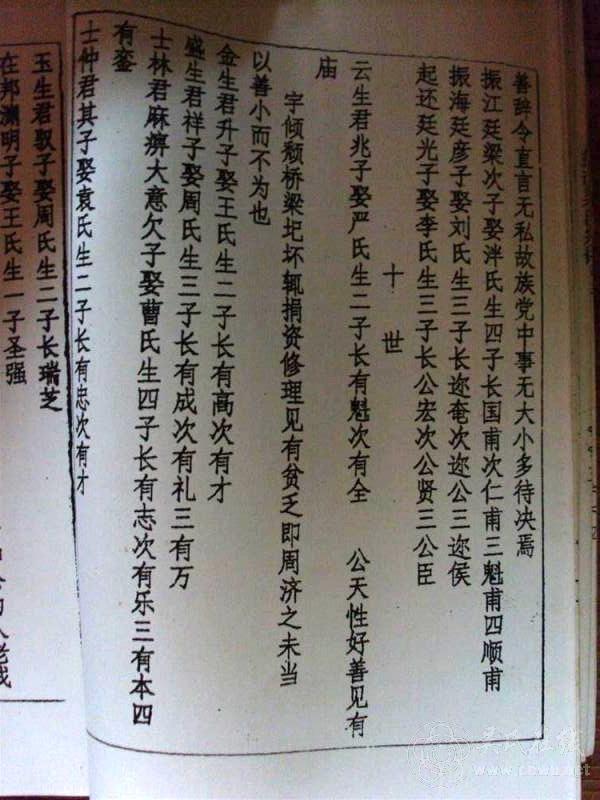 善辞令直言无私故族党中事无大小多待决焉
振江廷梁次子娶泮氏生四子长国甫次仁甫三魁甫四顺甫
振海廷彦子娶刘氏生三子长迩奄次迩公三迩侯
起还廷光子娶李氏生三子长公宏次公贤三公臣
十世
云生君兆子娶严氏生二子长有魁次有全 公天性好善见有
庙
宇倾颓桥梁圮坏辄捐资修理见有贫乏即周济之未当
以善小而不为也
金生君升子娶王氏生二子长有高次有才
盛生君祥子娶周氏生三子长有成次有礼三有万
士林君麻痹大意欠子娶曹氏生四子长有志次有乐三有本四
有銮
士仲君其子娶袁氏生二子长有忠次有才
玉生君驭子娶周氏生二子长瑞芝
在邦渊明子娶王氏生一子圣强